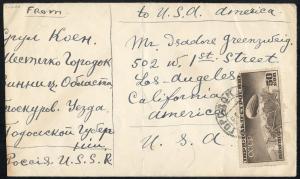 From
to U.S.A. America
Срул Коен.
Местечко Городок
Винниц. Области
Проскуров. Уезда.
Подольской Губер-
нии.
Россия U.S.S.R
Mr. Isadore Greenzweig
502 W. 1st. Street
Los-Angeles
California
America
U. S. A